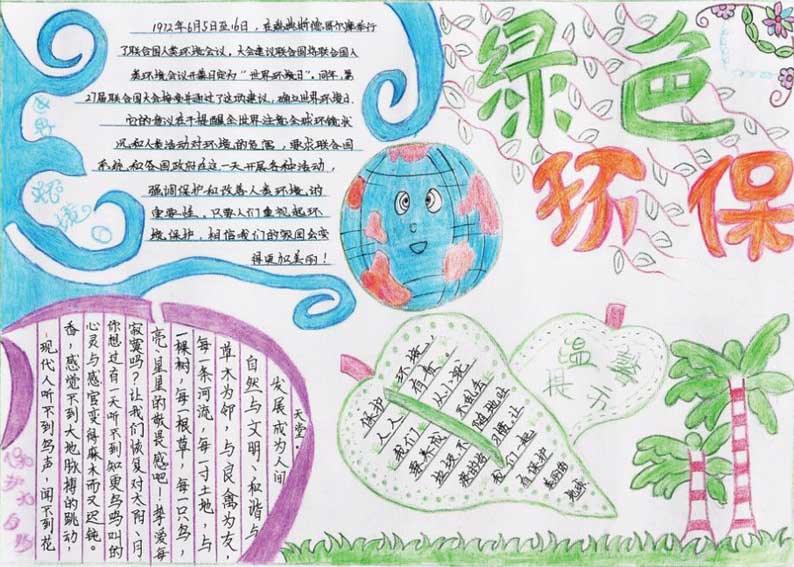 绿色
环保
1972年6月5日至16日，在瑞典斯德哥尔摩举行
了联合国人类环境会议，大会建议联合国将联合国人
类环境会议开幕日定为“世界环境日”。同年，第
27届联合国大会接受并通过了这项建议，确立世界环境日.
它的意义在于提醒全世界注意全球环境状
况和人类活动对环境的危害，要求联合国
系统和各国政府在这一天开展各种活动，
强调保护和改善人类环境的
重要性，只要人们重视起环
境保护，相信我们的家园会变
得更加美丽！
世界环境日
现代人听不到鸟声，闻不到花
香，感觉不到大地脉搏的跳动，
心灵与感官变得麻木而又迟钝。
你想过有一天听不到知更鸟鸟叫的
寂寞吗？让我们恢复对太阳、月
亮、星星的敬畏感吧！挚爱每
一棵树，每一根草，每一只鸟，
每一条河流，每一寸土地，与
草木为邻，与良禽为友，
自然与文明、和谐与
发展成为人间
天堂。
保护大自然
温馨
提示
保护环境，
人人有责
我们从小就
要养成不乱丢
垃圾不随地吐
痰的好习惯.让
我们一起
去保护
美丽的
地球